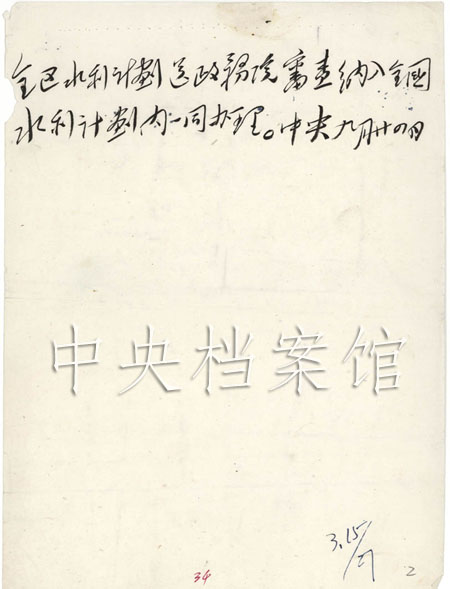 全区水利计劃送政務院審查納入全國
水利计劃内一同办理。中央九月廿四日
中央档案馆
3.15/
34
2